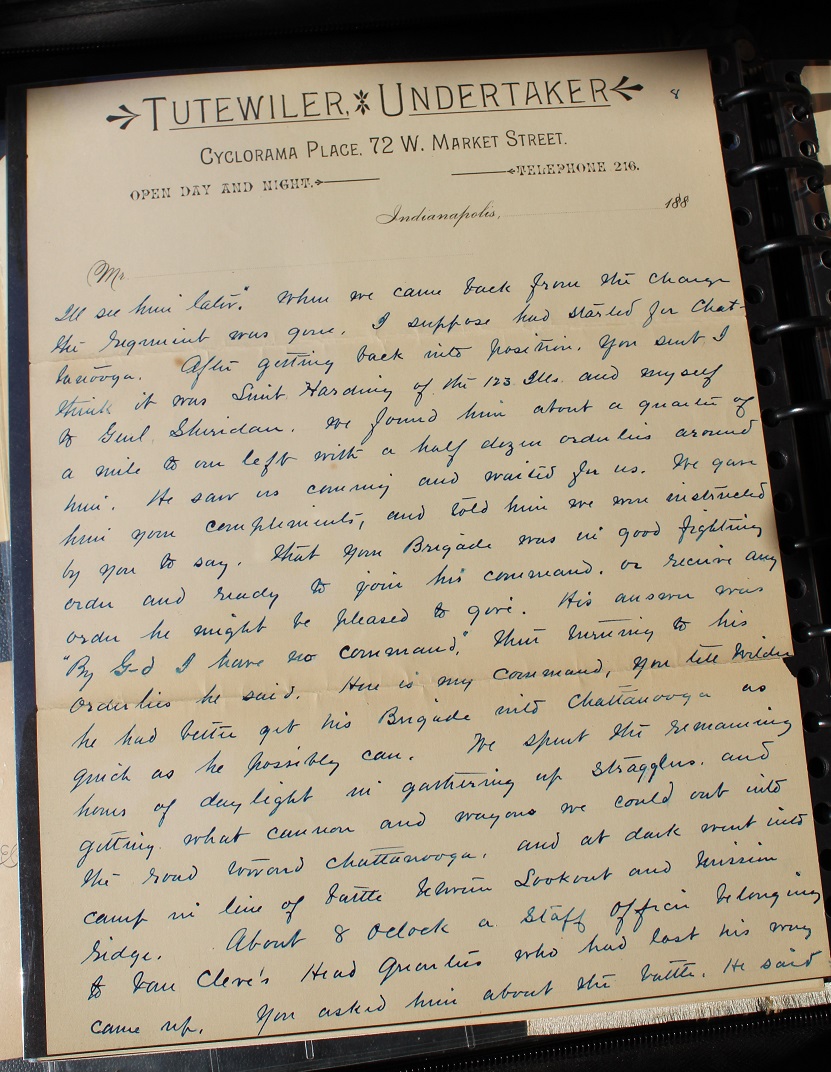 8
TUTEWILER, UNDERTAKER
CYCLORAMA PLACE, 72 W. MARKET STREET.
OPEN DAY AND NIGHT. TELEPHONE 216.
Indianapolis, 188
Mr.
Ill see him later." When we came back from the charge
the regiment was gone. I suppose had started for Chat-
tanooga. After getting back into position. You sent I
think it was Lieut Harding of the 123 Ills. and myself
to Genl. Sheridan. We found him about a quarter of
a mile to our left with a half dozen orderlies around
him. He saw us coming and waited for us. We gave
him your compliments, and told him we were instructed
by you to say. that your Brigade was in good fighting
order and ready to join his command. or receive any
order he might be pleased to give. His answer was
"By G-d I have no command." then turning to his
orderlies he said. Here is my command, You tell Wilder
he had better get his Brigade into Chattanooga as
quick as he possibly can. We spent the remaining
hours of daylight in gathering up stragglers. and
getting what cannon and wagons we could out into
the road toward Chattanooga. and at dark went into
camp in line of battle between Lookout and Mission
Ridge. About 8 oclock a staff officer belonging
to Van Cleve's Head Quarters who had lost his way
came up. You asked him about the battle. He said